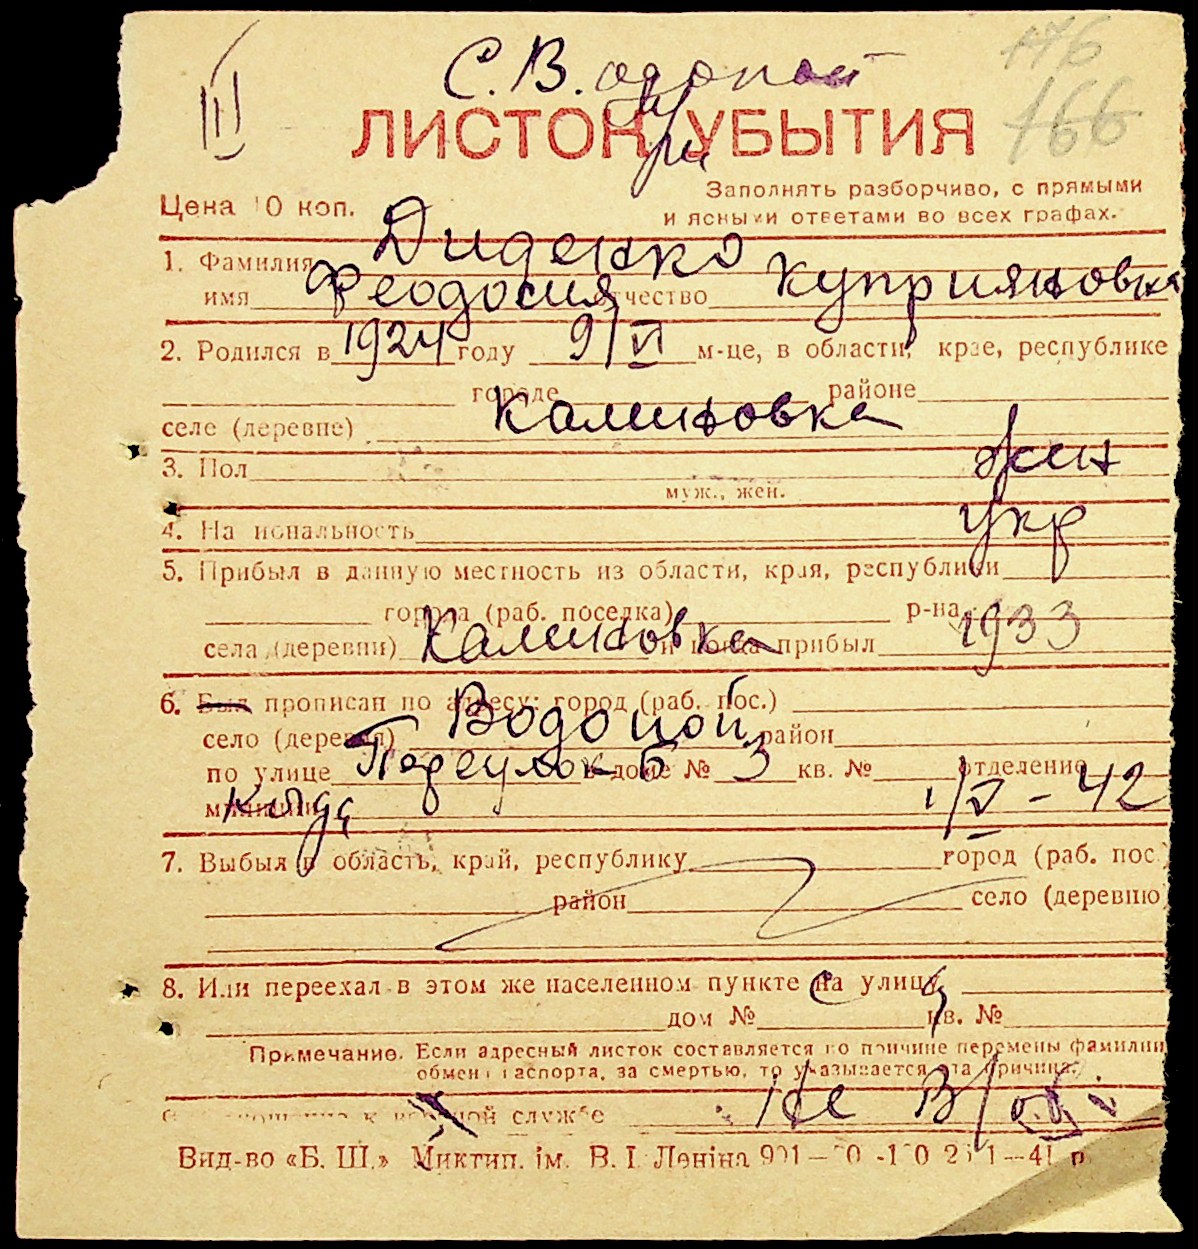 С. Водопой
176
166
III
ЛИСТОК УБЫТИЯ
Цена 10 коп.
Заполнять разборчиво, с прямыми
и ясными ответами во всех графах.
1. Фамилия Диденко
имя Феодосия отчество Куприяновна
2. Родился в 1924 году 9/VI м-це, в области, крае, республике
городе районе
селе (деревне) Калиновка
3. Пол жен
муж., жен.
4. Национальность укр
5. Прибыл в данную местность из области, края, республики
города (раб. поселка) р-на
села (деревни) Калиновка и когда прибыл 1933
6. Был прописан по адресу: город (раб. пос.)
село (деревня) Водопой район
по улице Переулок 5 в доме № 3 кв. № отделение
милиции Когда 1/V - 42
7. Выбыл в область, край, республику город (раб. пос.)
район село (деревню)
8. Или переехал в этом же населенном пункте на улицу
дом № кв. №
Примечание. Если адресный листок составляется по причине перемены фамилии,
обмена паспорта, за смертью, то указывается эта причина.
Отношение к военной службе не в/об
Вид-во «Б. Ш.» Миктип. ім. В. І. Леніна